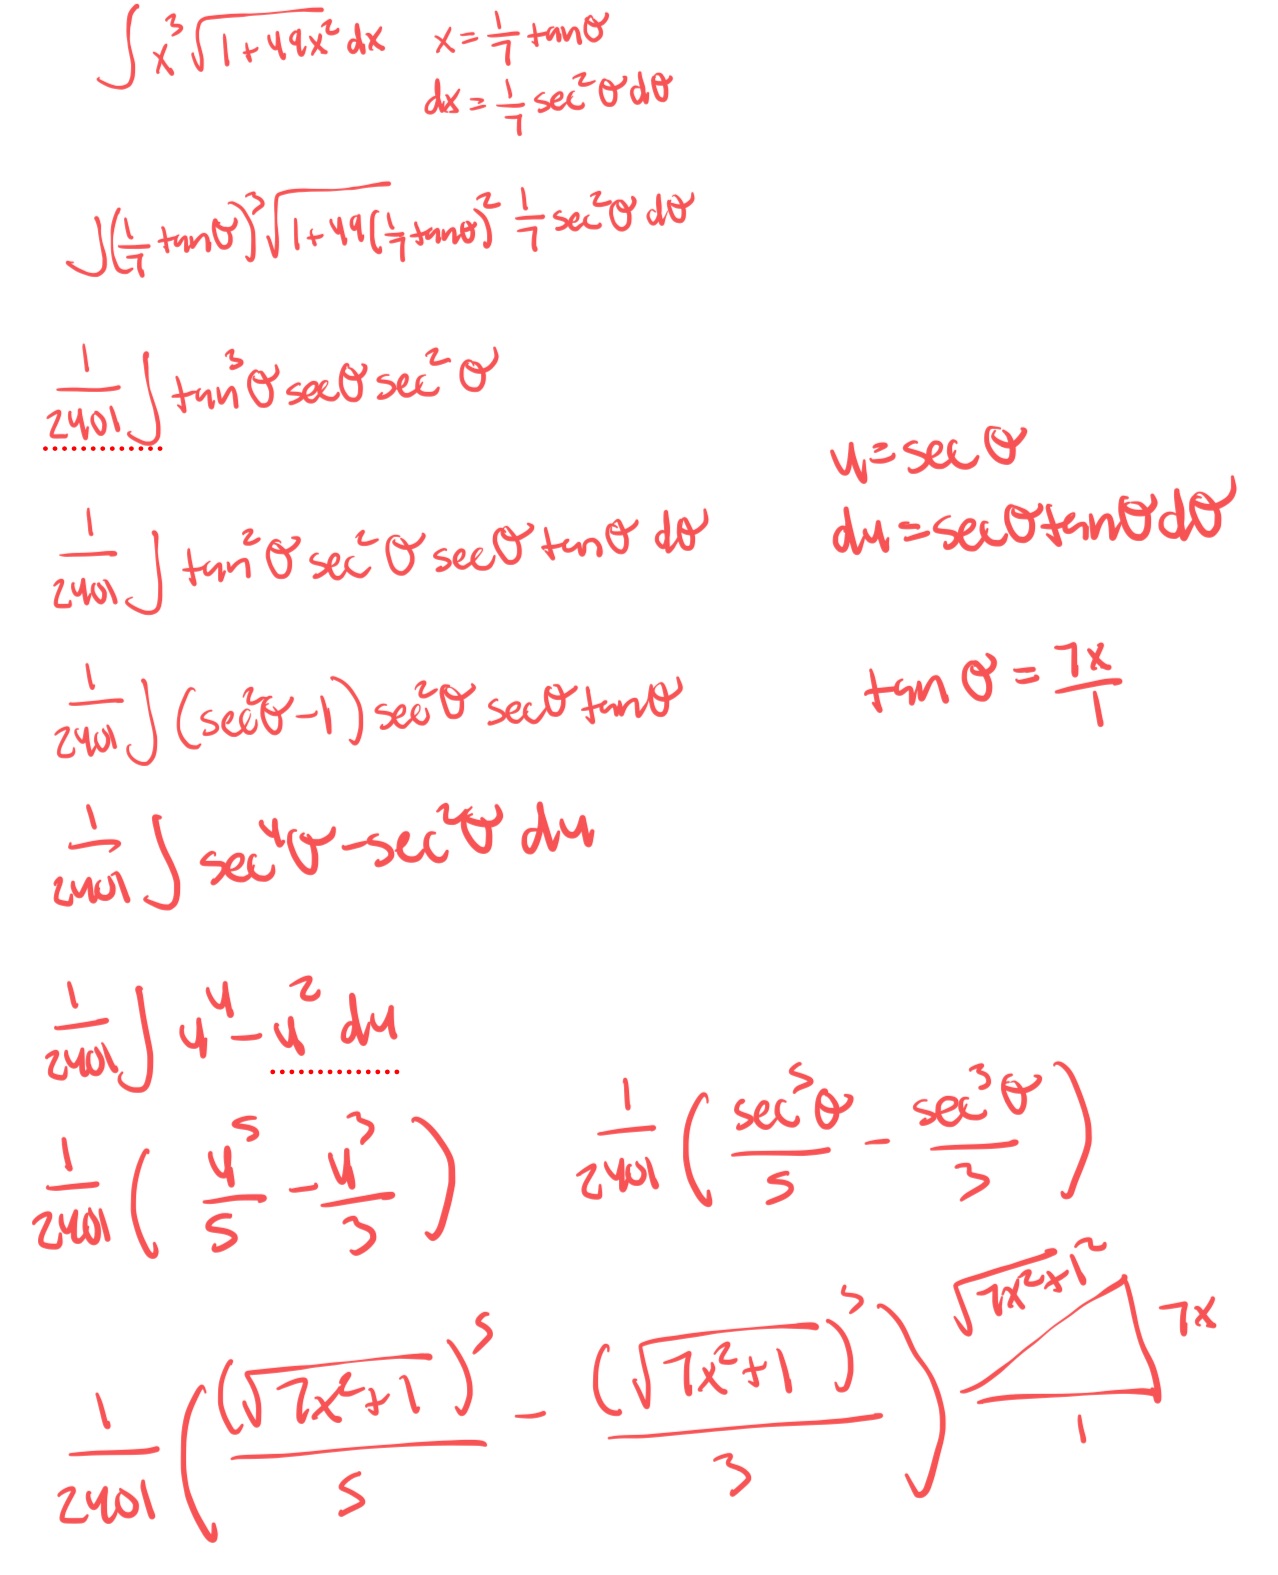 ∫ x³ √(1+49x²) dx   x = 1/7 tanθ
dx = 1/7 sec²θ dθ
∫ (1/7 tanθ)³ √(1+49(1/7 tanθ)²) 1/7 sec²θ dθ
1/2401 ∫ tan³θ secθ sec²θ
u = secθ
du = secθ tanθ dθ
1/2401 ∫ tan²θ sec²θ secθ tanθ dθ
tanθ = 7x/1
1/2401 ∫ (sec²θ-1) sec²θ secθ tanθ
1/2401 ∫ sec⁴θ - sec²θ du
1/2401 ∫ u⁴ - u² du
1/2401 (u⁵/5 - u³/3)   1/2401 (sec⁵θ/5 - sec³θ/3)
√(7x²+1²)
7x
1
1/2401 ((√(7x²+1))⁵/5 - (√(7x²+1))³/3)